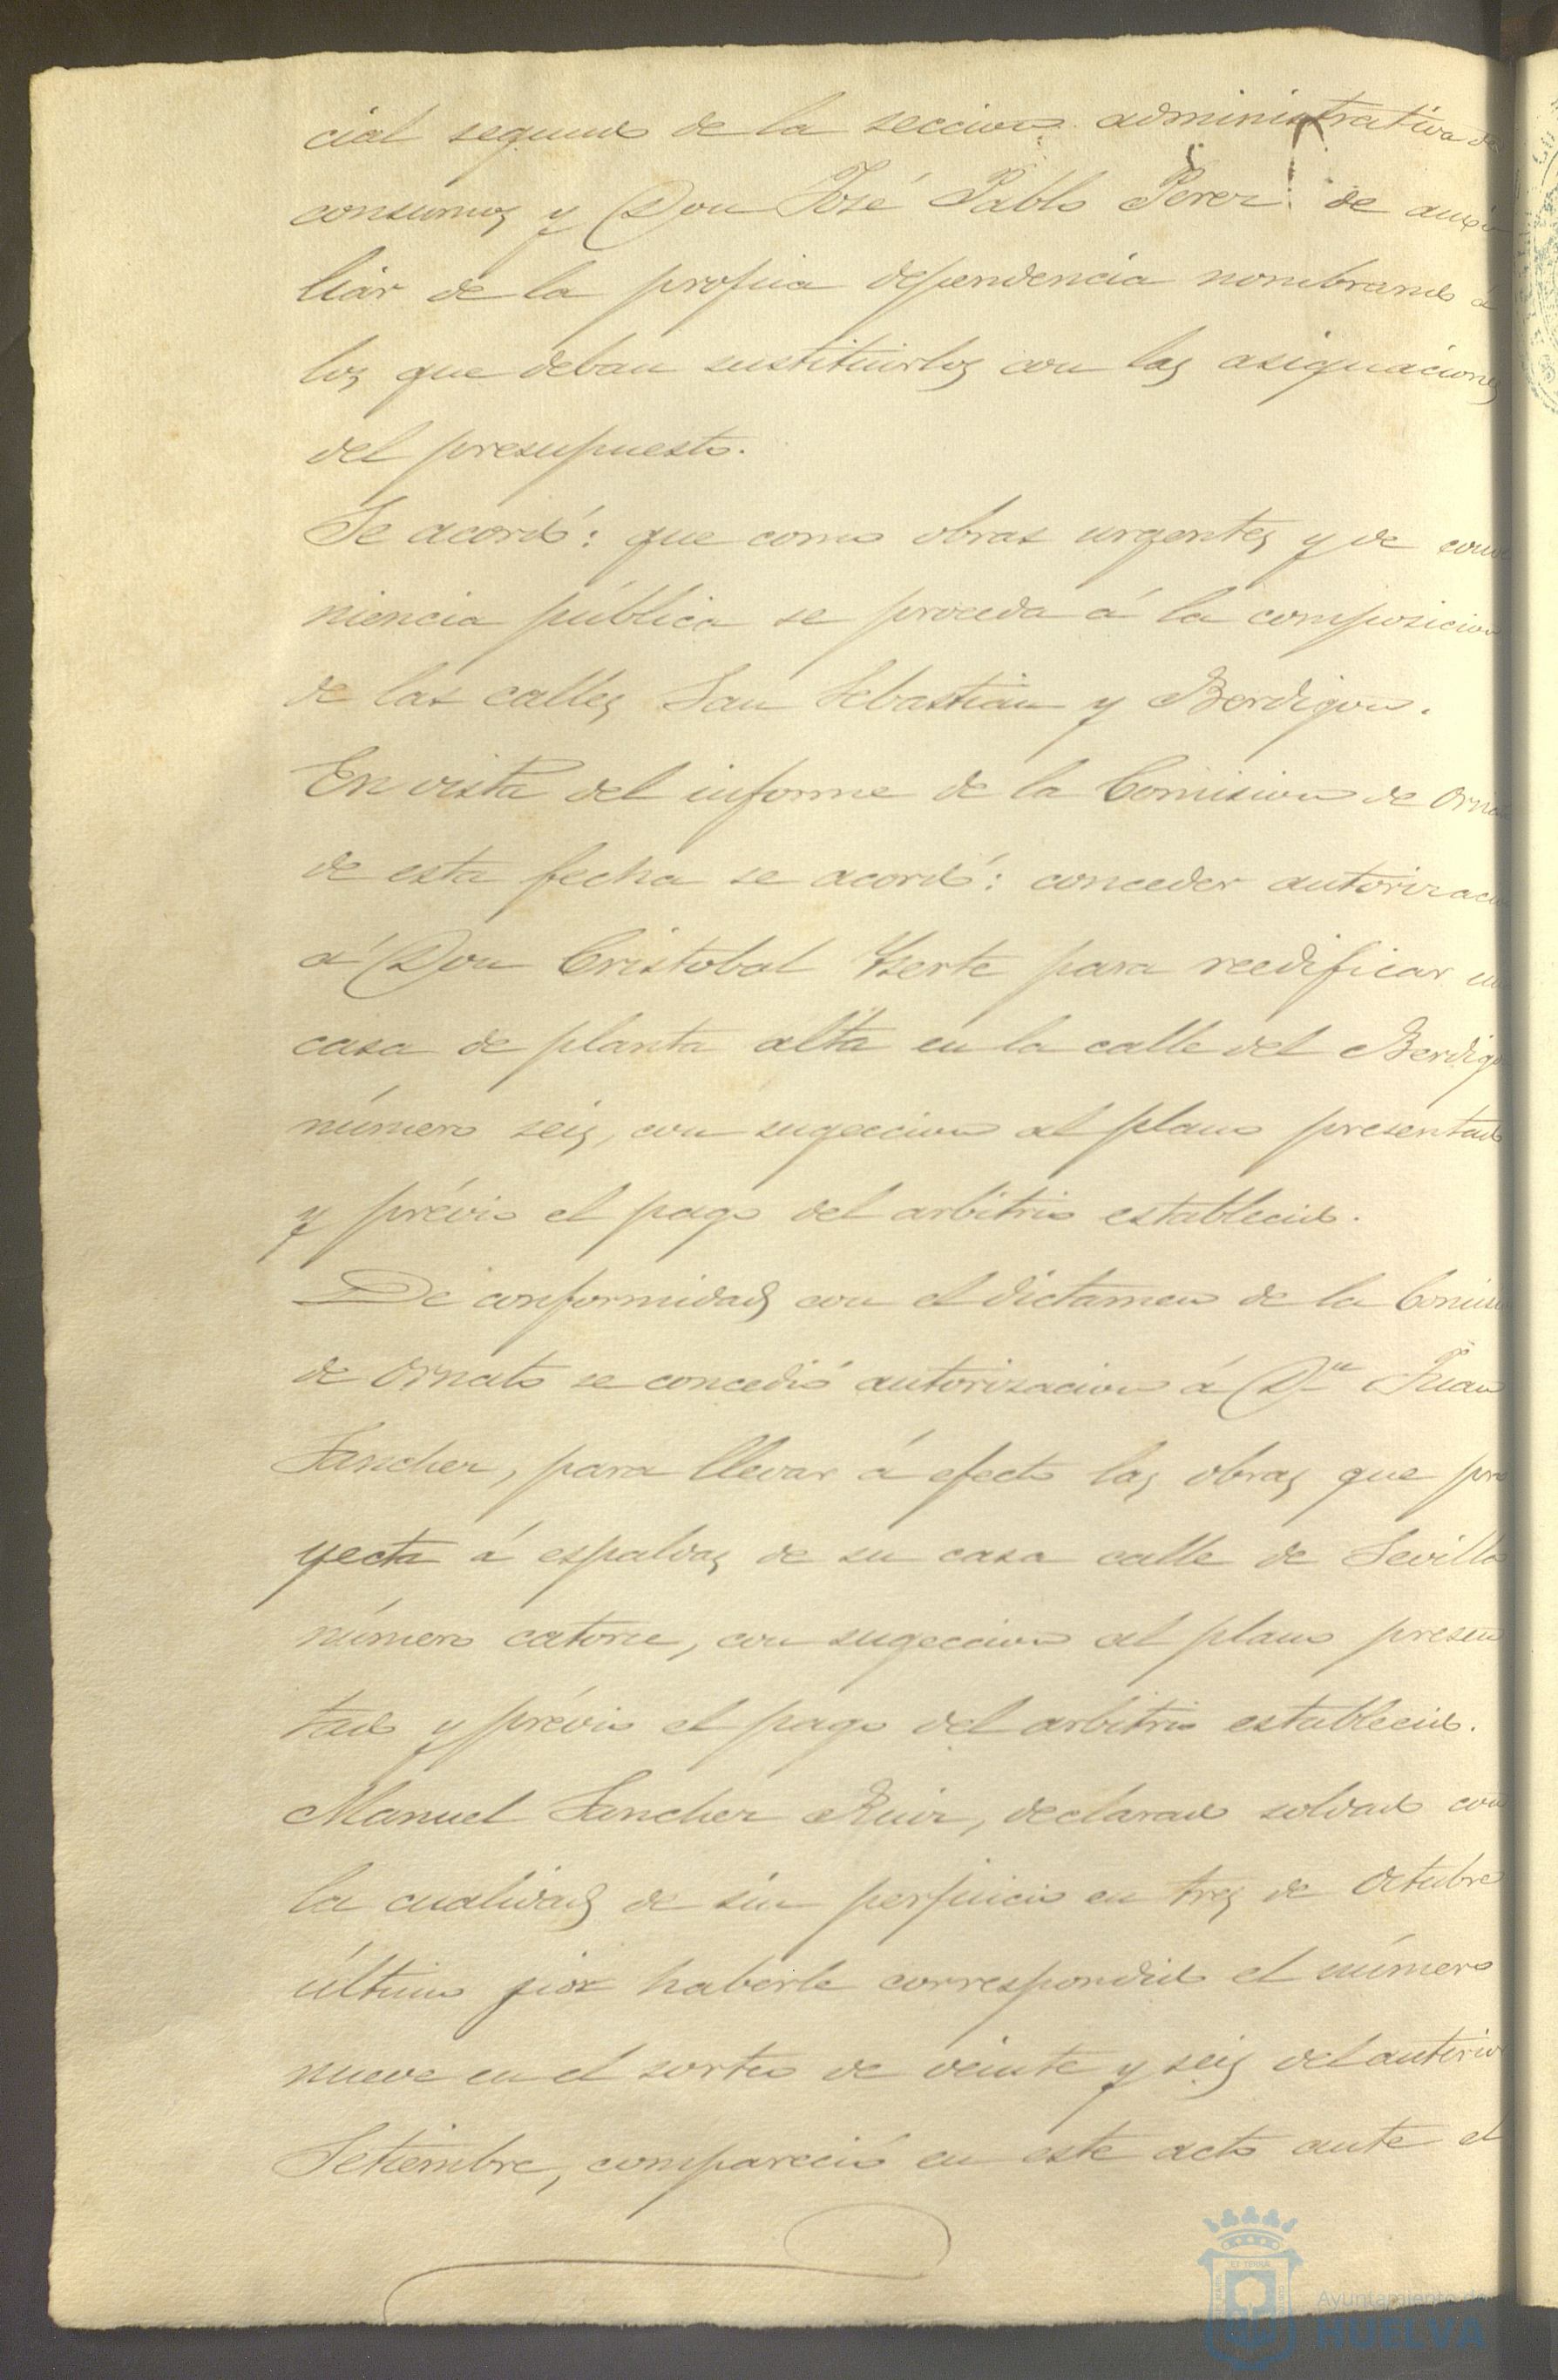 cial segundo de la seccion administrativa de
consumos y Don José Pablo Perez de auxi
liar de la propia dependencia nombrando á
los que deban sustituirlos con las asignaciones
del presupuesto.
Se acordó: que como obras urgentes y de conve
niencia pública se proceda á la composicion
de las calles San Sebastian y Berdigon.
En vista del informe de la Comision de Orna
de esta fecha se acordó: conceder autorizacion
á Don Cristobal Yserte para reedificar una
casa de planta alta en la calle del Berdigon
número seis, con sugeccion al plano presentado
y prévio el pago del arbitrio establecido.
De conformidad con el dictamen de la Comision
de Ornato se concedió autorizacion á Dn Juan
Sanchez, para llevar á efecto las obras que pro
yecta á espaldas de su casa calle de Sevilla
número catorce, con sugeccion al plano presen
tado y prévio el pago del arbitrio establecido.
Manuel Sanchez Ruiz, declarado soldado con
la cualidad de sin perjuicio en tres de Octubre
último por haberle correspondido el número
nueve en el sorteo de veinte y seis del anterior
Setiembre, compareció en este acto ante el
Ayuntamiento de
HUELVA